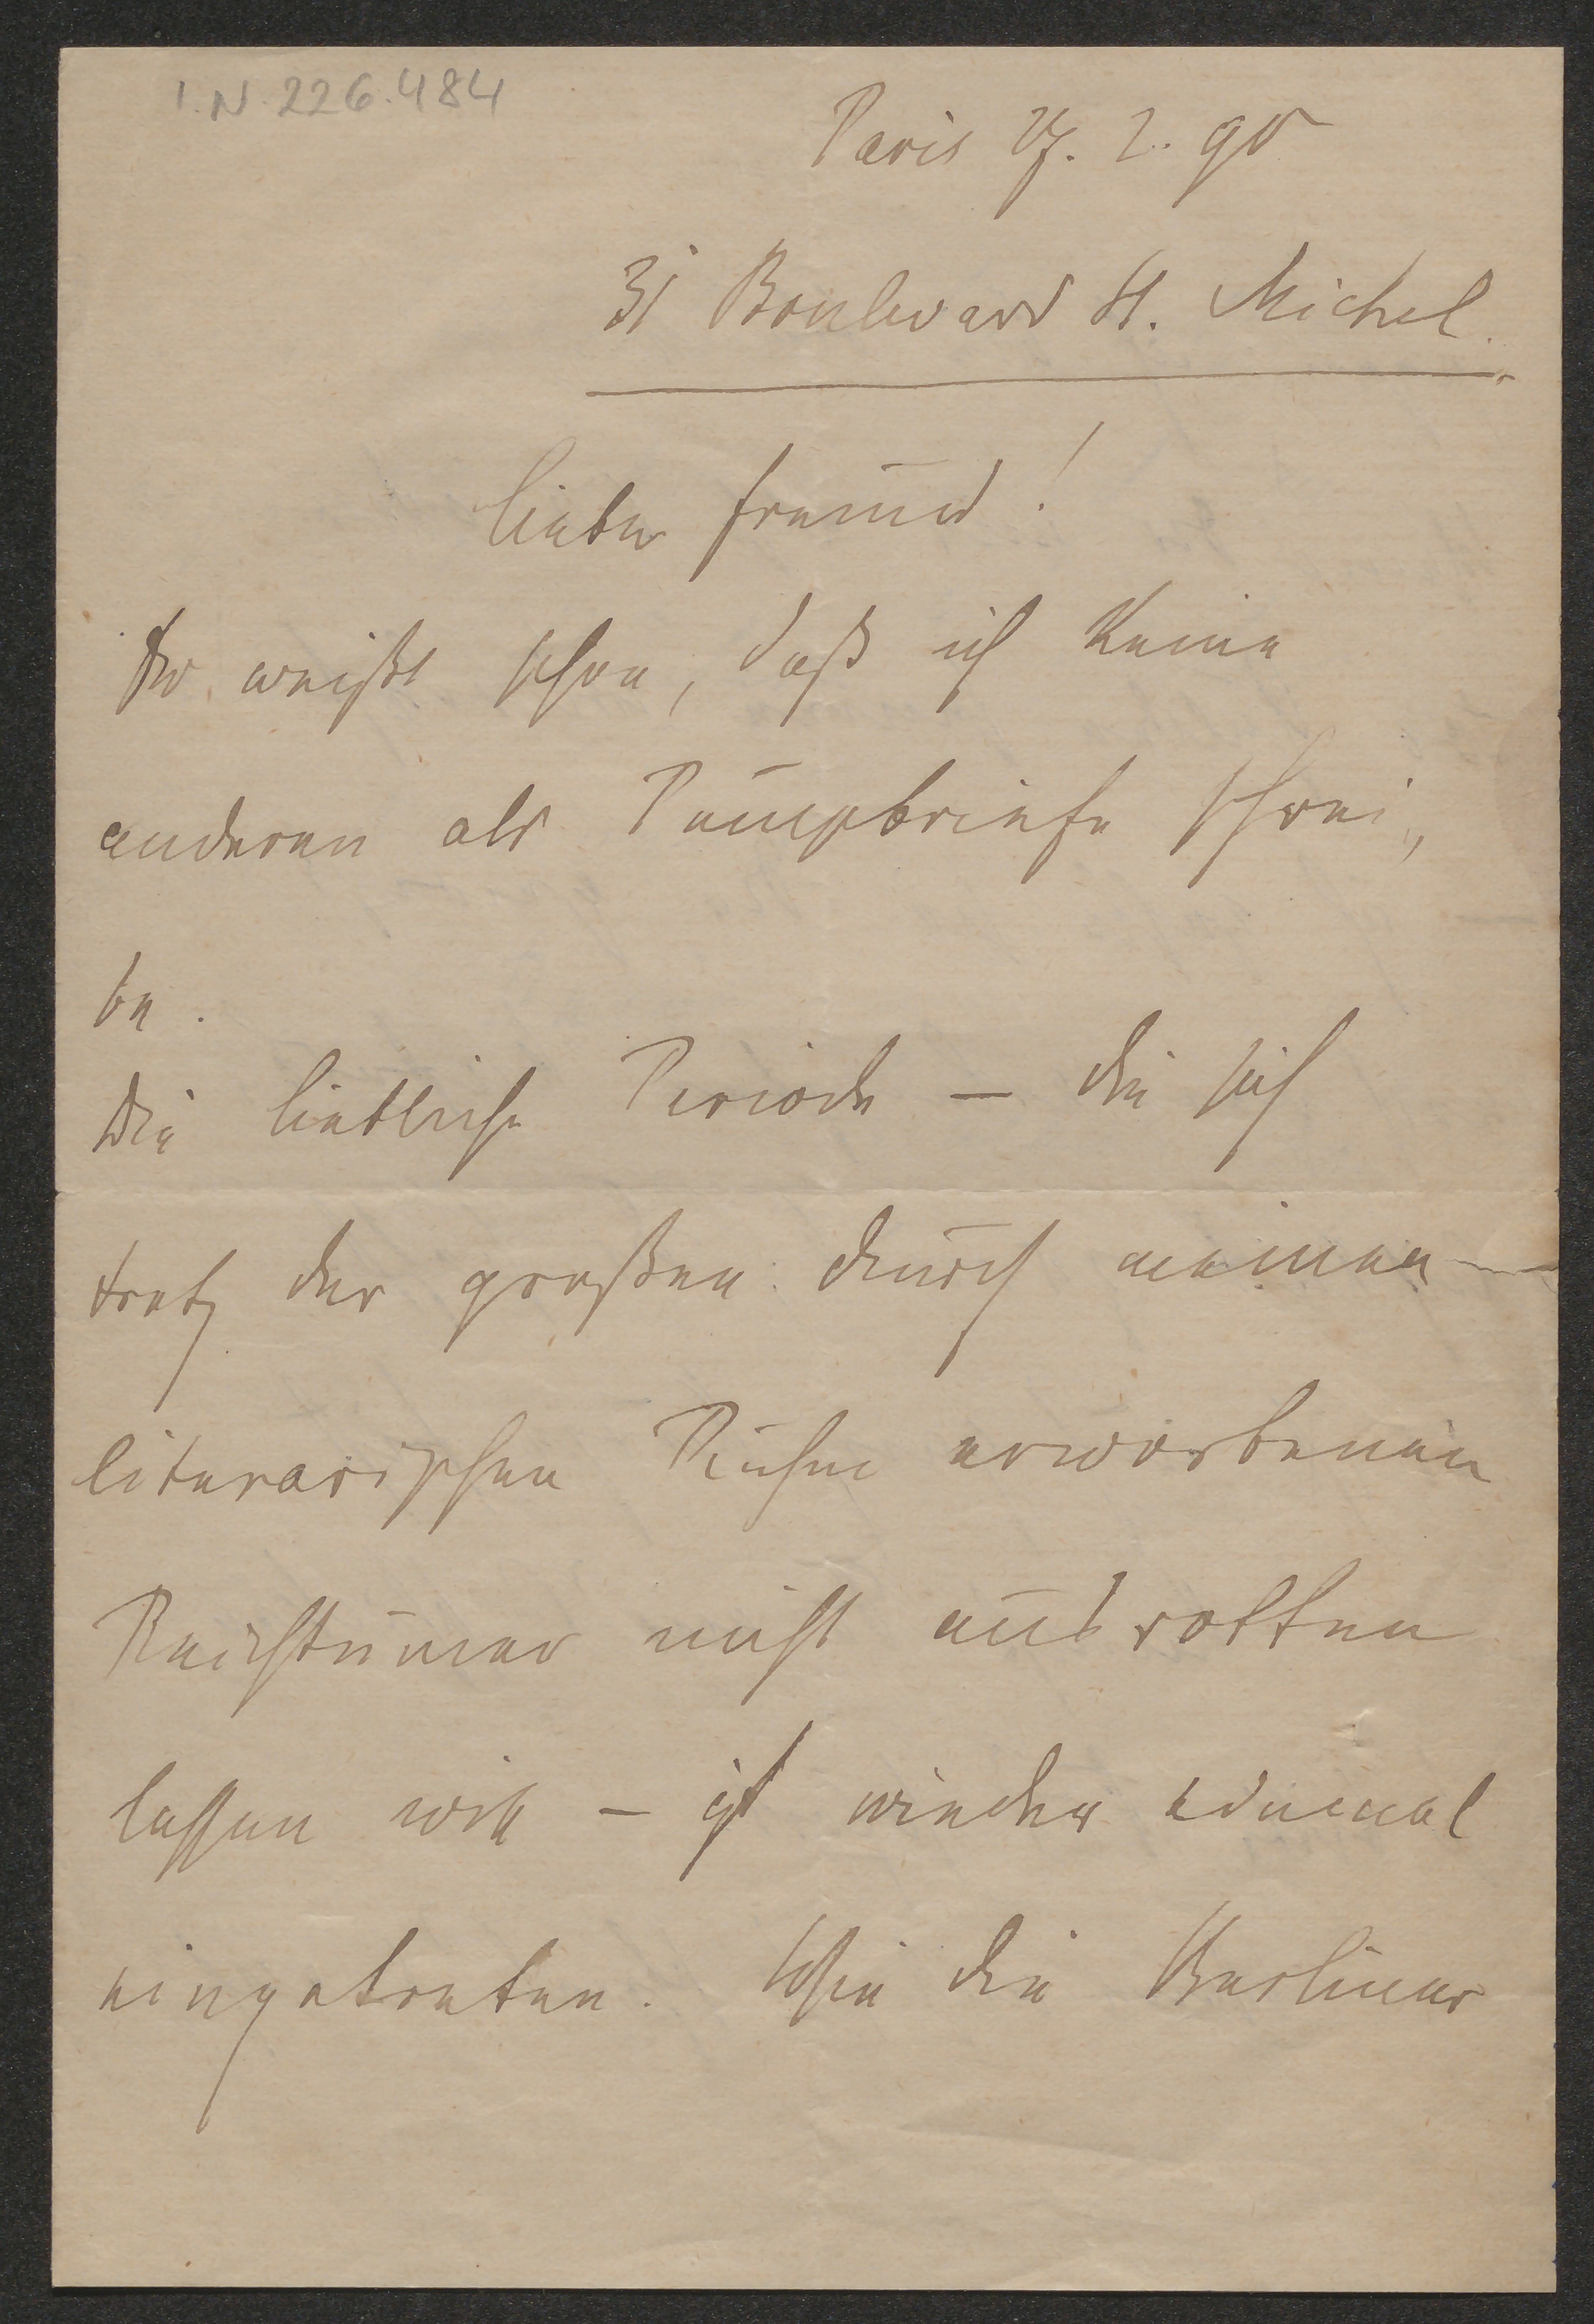 I.N. 226.484
Paris 27. 2. 90
31 Boulevard St. Michel.
Lieber Freund!
Du weißt schon, daß ich keine
anderen als Pumpbriefe schrei-
be.
Die liebliche Periode – die sich
trotz der großen durch meinen
literarischen Ruhm erworbenen
Reichtümer nicht ausrotten
lassen will – ist wieder einmal
eingetreten. Wie die Berliner